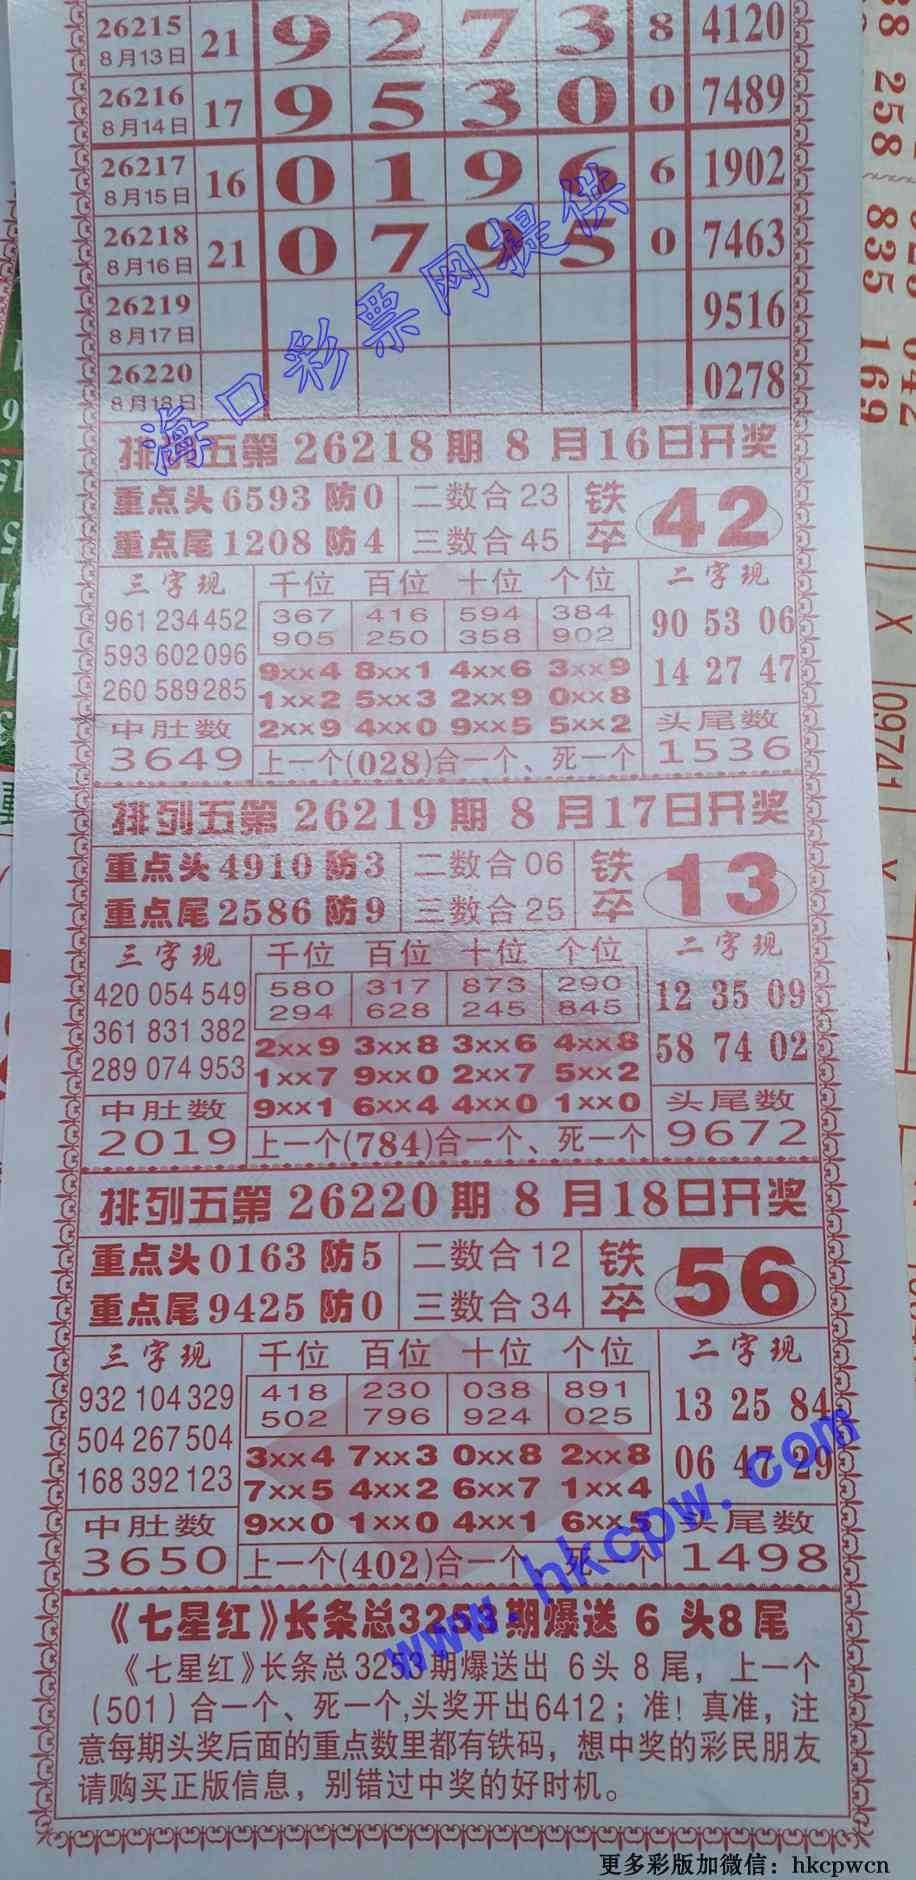 26215 21 9 2 7 3 8 4120
8月13日
26216 17 9 5 3 0 0 7489
8月14日
26217 16 0 1 9 6 6 1902
8月15日
26218 21 0 7 9 5 0 7463
8月16日
26219 9516
8月17日
26220 0278
8月18日
海口彩票网提供
排列五第26218期8月16日开奖
重点头6593防0 二数合23 铁卒 42
重点尾1208防4 三数合45
三字现 千位 百位 十位 个位 二字现
961 234 452 367 416 594 384 90 53 06
593 602 096 905 250 358 902
260 589 285 9xx4 8xx1 4xx6 3xx9 14 27 47
1xx2 5xx3 2xx9 0xx8
中肚数 2xx9 4xx0 9xx5 5xx2 头尾数
3649 上一个(028)合一个、死一个 1536
排列五第26219期8月17日开奖
重点头4910防3 二数合06 铁卒 13
重点尾2586防9 三数合25
三字现 千位 百位 十位 个位 二字现
420 054 549 580 317 873 290 12 35 09
361 831 382 294 628 245 845
289 074 953 2xx9 3xx8 3xx6 4xx8 58 74 02
1xx7 9xx0 2xx7 5xx2
中肚数 9xx1 6xx4 4xx0 1xx0 头尾数
2019 上一个(784)合一个、死一个 9672
排列五第26220期8月18日开奖
重点头0163防5 二数合12 铁卒 56
重点尾9425防0 三数合34
三字现 千位 百位 十位 个位 二字现
932 104 329 418 230 038 891 13 25 84
504 267 504 502 796 924 025
168 392 123 3xx4 7xx3 0xx8 2xx8 06 47 29
7xx5 4xx2 6xx7 1xx4
中肚数 9xx0 1xx0 4xx1 6xx5 头尾数
3650 上一个(402)合一个、死一个 1498
www.hkcpw.com
《七星红》长条总3253期爆送 6 头8尾
《七星红》长条总3253期爆送出 6头8尾，上一个
(501)合一个、死一个,头奖开出6412；准！真准，注
意每期头奖后面的重点数里都有铁码，想中奖的彩民朋友
请购买正版信息，别错过中奖的好时机。
更多彩版加微信：hkcpwcn
258
835
169
X
09741